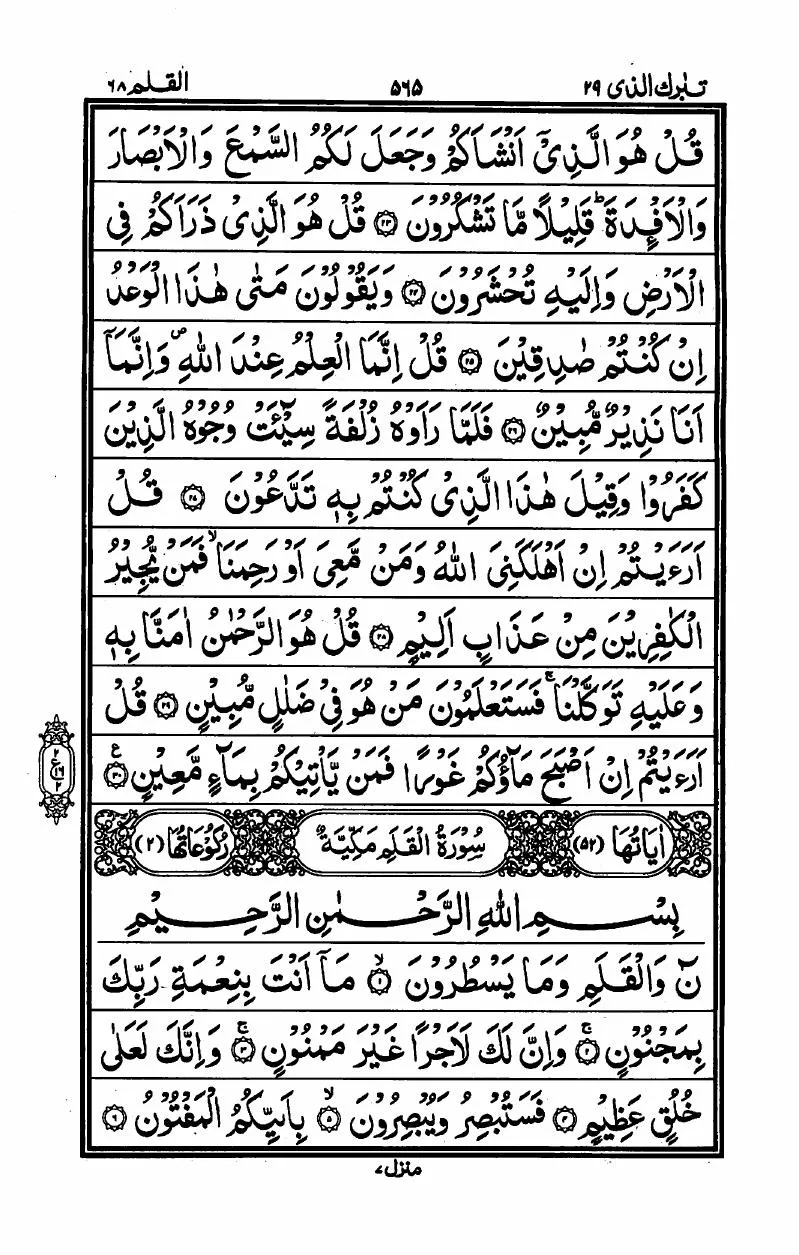 تبٰرك الذی ۲۹
۵۶۵
القلم ۶۸
قُلْ هُوَ الَّذِیْۤ اَنْشَاَكُمْ وَجَعَلَ لَكُمُ السَّمْعَ وَالْاَبْصَارَ
وَالْاَفْـِٕدَةَ ؕ قَلِیْلًا مَّا تَشْكُرُوْنَ ۝۲۳ قُلْ هُوَ الَّذِیْ ذَرَاَكُمْ فِی
الْاَرْضِ وَاِلَیْهِ تُحْشَرُوْنَ ۝۲۴ وَیَقُوْلُوْنَ مَتٰی هٰذَا الْوَعْدُ
اِنْ كُنْتُمْ صٰدِقِیْنَ ۝۲۵ قُلْ اِنَّمَا الْعِلْمُ عِنْدَ اللّٰهِ ۪ وَاِنَّمَاۤ
اَنَا نَذِیْرٌ مُّبِیْنٌ ۝۲۶ فَلَمَّا رَاَوْهُ زُلْفَةً سِیْٓـَٔتْ وُجُوْهُ الَّذِیْنَ
كَفَرُوْا وَقِیْلَ هٰذَا الَّذِیْ كُنْتُمْ بِهٖ تَدَّعُوْنَ ۝۲۷ قُلْ
اَرَءَیْتُمْ اِنْ اَهْلَكَنِیَ اللّٰهُ وَمَنْ مَّعِیَ اَوْ رَحِمَنَا ۙ فَمَنْ یُّجِیْرُ
الْكٰفِرِیْنَ مِنْ عَذَابٍ اَلِیْمٍ ۝۲۸ قُلْ هُوَ الرَّحْمٰنُ اٰمَنَّا بِهٖ
وَعَلَیْهِ تَوَكَّلْنَا ۚ فَسَتَعْلَمُوْنَ مَنْ هُوَ فِیْ ضَلٰلٍ مُّبِیْنٍ ۝۲۹ قُلْ
اَرَءَیْتُمْ اِنْ اَصْبَحَ مَآؤُكُمْ غَوْرًا فَمَنْ یَّاْتِیْكُمْ بِمَآءٍ مَّعِیْنٍ ۝۳۰ ع
اٰیَاتُهَا (۵۲) سُوْرَةُ الْقَلَمِ مَكِّیَّةٌ رُكُوْعَاتُهَا (۲)
بِسْمِ اللّٰهِ الرَّحْمٰنِ الرَّحِیْمِ
نٓ وَالْقَلَمِ وَمَا یَسْطُرُوْنَ ۝۱ۙ مَاۤ اَنْتَ بِنِعْمَةِ رَبِّكَ
بِمَجْنُوْنٍ ۝۲ۚ وَاِنَّ لَكَ لَاَجْرًا غَیْرَ مَمْنُوْنٍ ۝۳ۚ وَاِنَّكَ لَعَلٰی
خُلُقٍ عَظِیْمٍ ۝۴ فَسَتُبْصِرُ وَیُبْصِرُوْنَ ۝۵ۙ بِاَیِّىكُمُ الْمَفْتُوْنُ ۝۶
منزل ۷